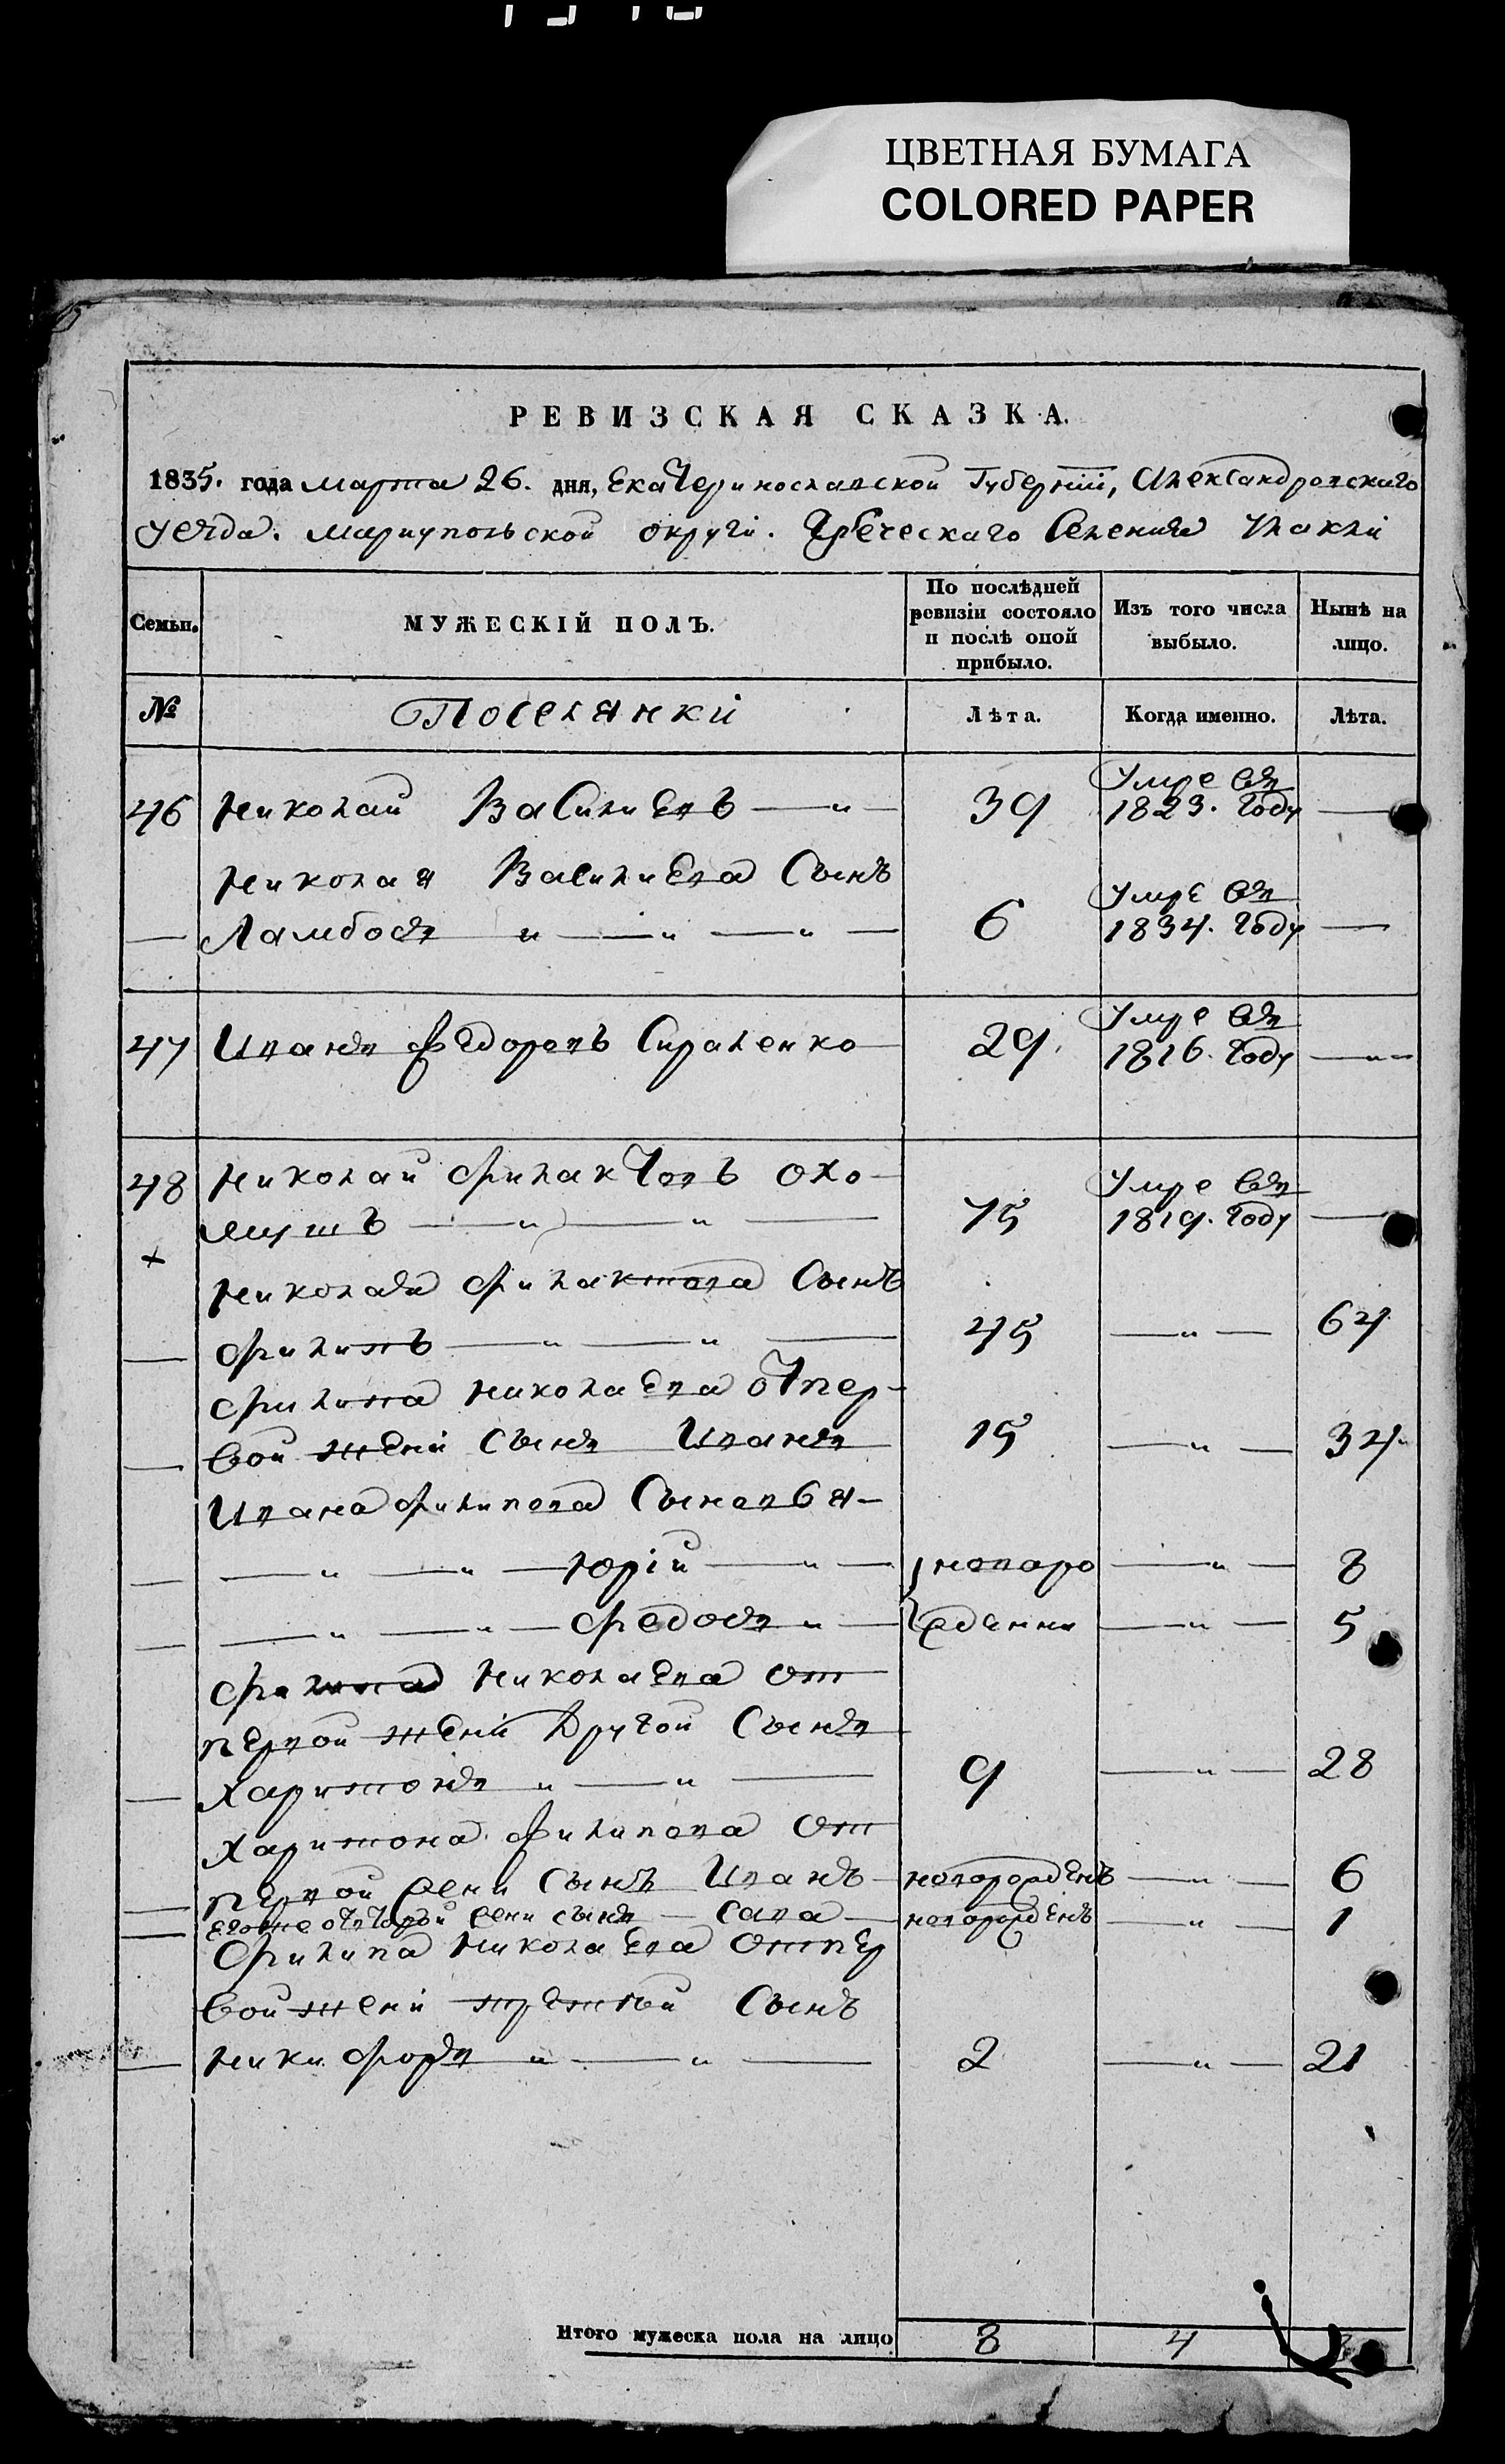 ЦВЕТНАЯ БУМАГА
COLORED PAPER
РЕВИЗСКАЯ СКАЗКА.
1835. года марта 26. дня, Екатеринославской Губерніи, Александровскаго
уезда. Мариупольской округи. Греческаго Селения
Семьи. МУЖЕСКІЙ ПОЛЪ. По послѣдней ревизіи состояло и послѣ оной прибыло. Изъ того числа выбыло. Нынѣ на лицо.
№ Поселянки Лѣта. Когда именно. Лѣта.
46 Николай Василиевъ — „ — 39 Умре въ 1823. Году —
Николая Василиева Сынъ
— Ламбовъ „ — „ — „ — 6 Умре въ 1834. Году —
47 Иванъ Федоровъ Сираненко — 29. Умре въ 1816. Году — „ —
48 Николай Филактовъ Охо-
мушъ — „ — „ — 75 Умре въ 1819. Году —
+
Николая Филактова Сынъ
— Филипъ — „ — „ — 45 — „ — 64
Филипа Николаева отпер-
— вой жени Сынъ Иванъ 15 — „ — 34
Ивана Филипова Сыновья —
— — „ — „ — Юрій — „ — новоро — „ — 8
— — „ — „ — Федосъ „ — жденни — „ — 5
Филипа Николаева от
первой жени Другой Сынъ
— Харитонъ „ — „ — 9 — „ — 28
Харитона Филипова от
— первой жени Сынъ Иванъ — новорожденъ — „ — 6
— еговже отвторой жени сынъ — Сава — новорожденъ — „ — 1
Филипа Николаева отпер
вой жени третій Сынъ
— Никифоръ „ — „ — 2 — „ — 21
Итого мужеска пола на лицо 8 4